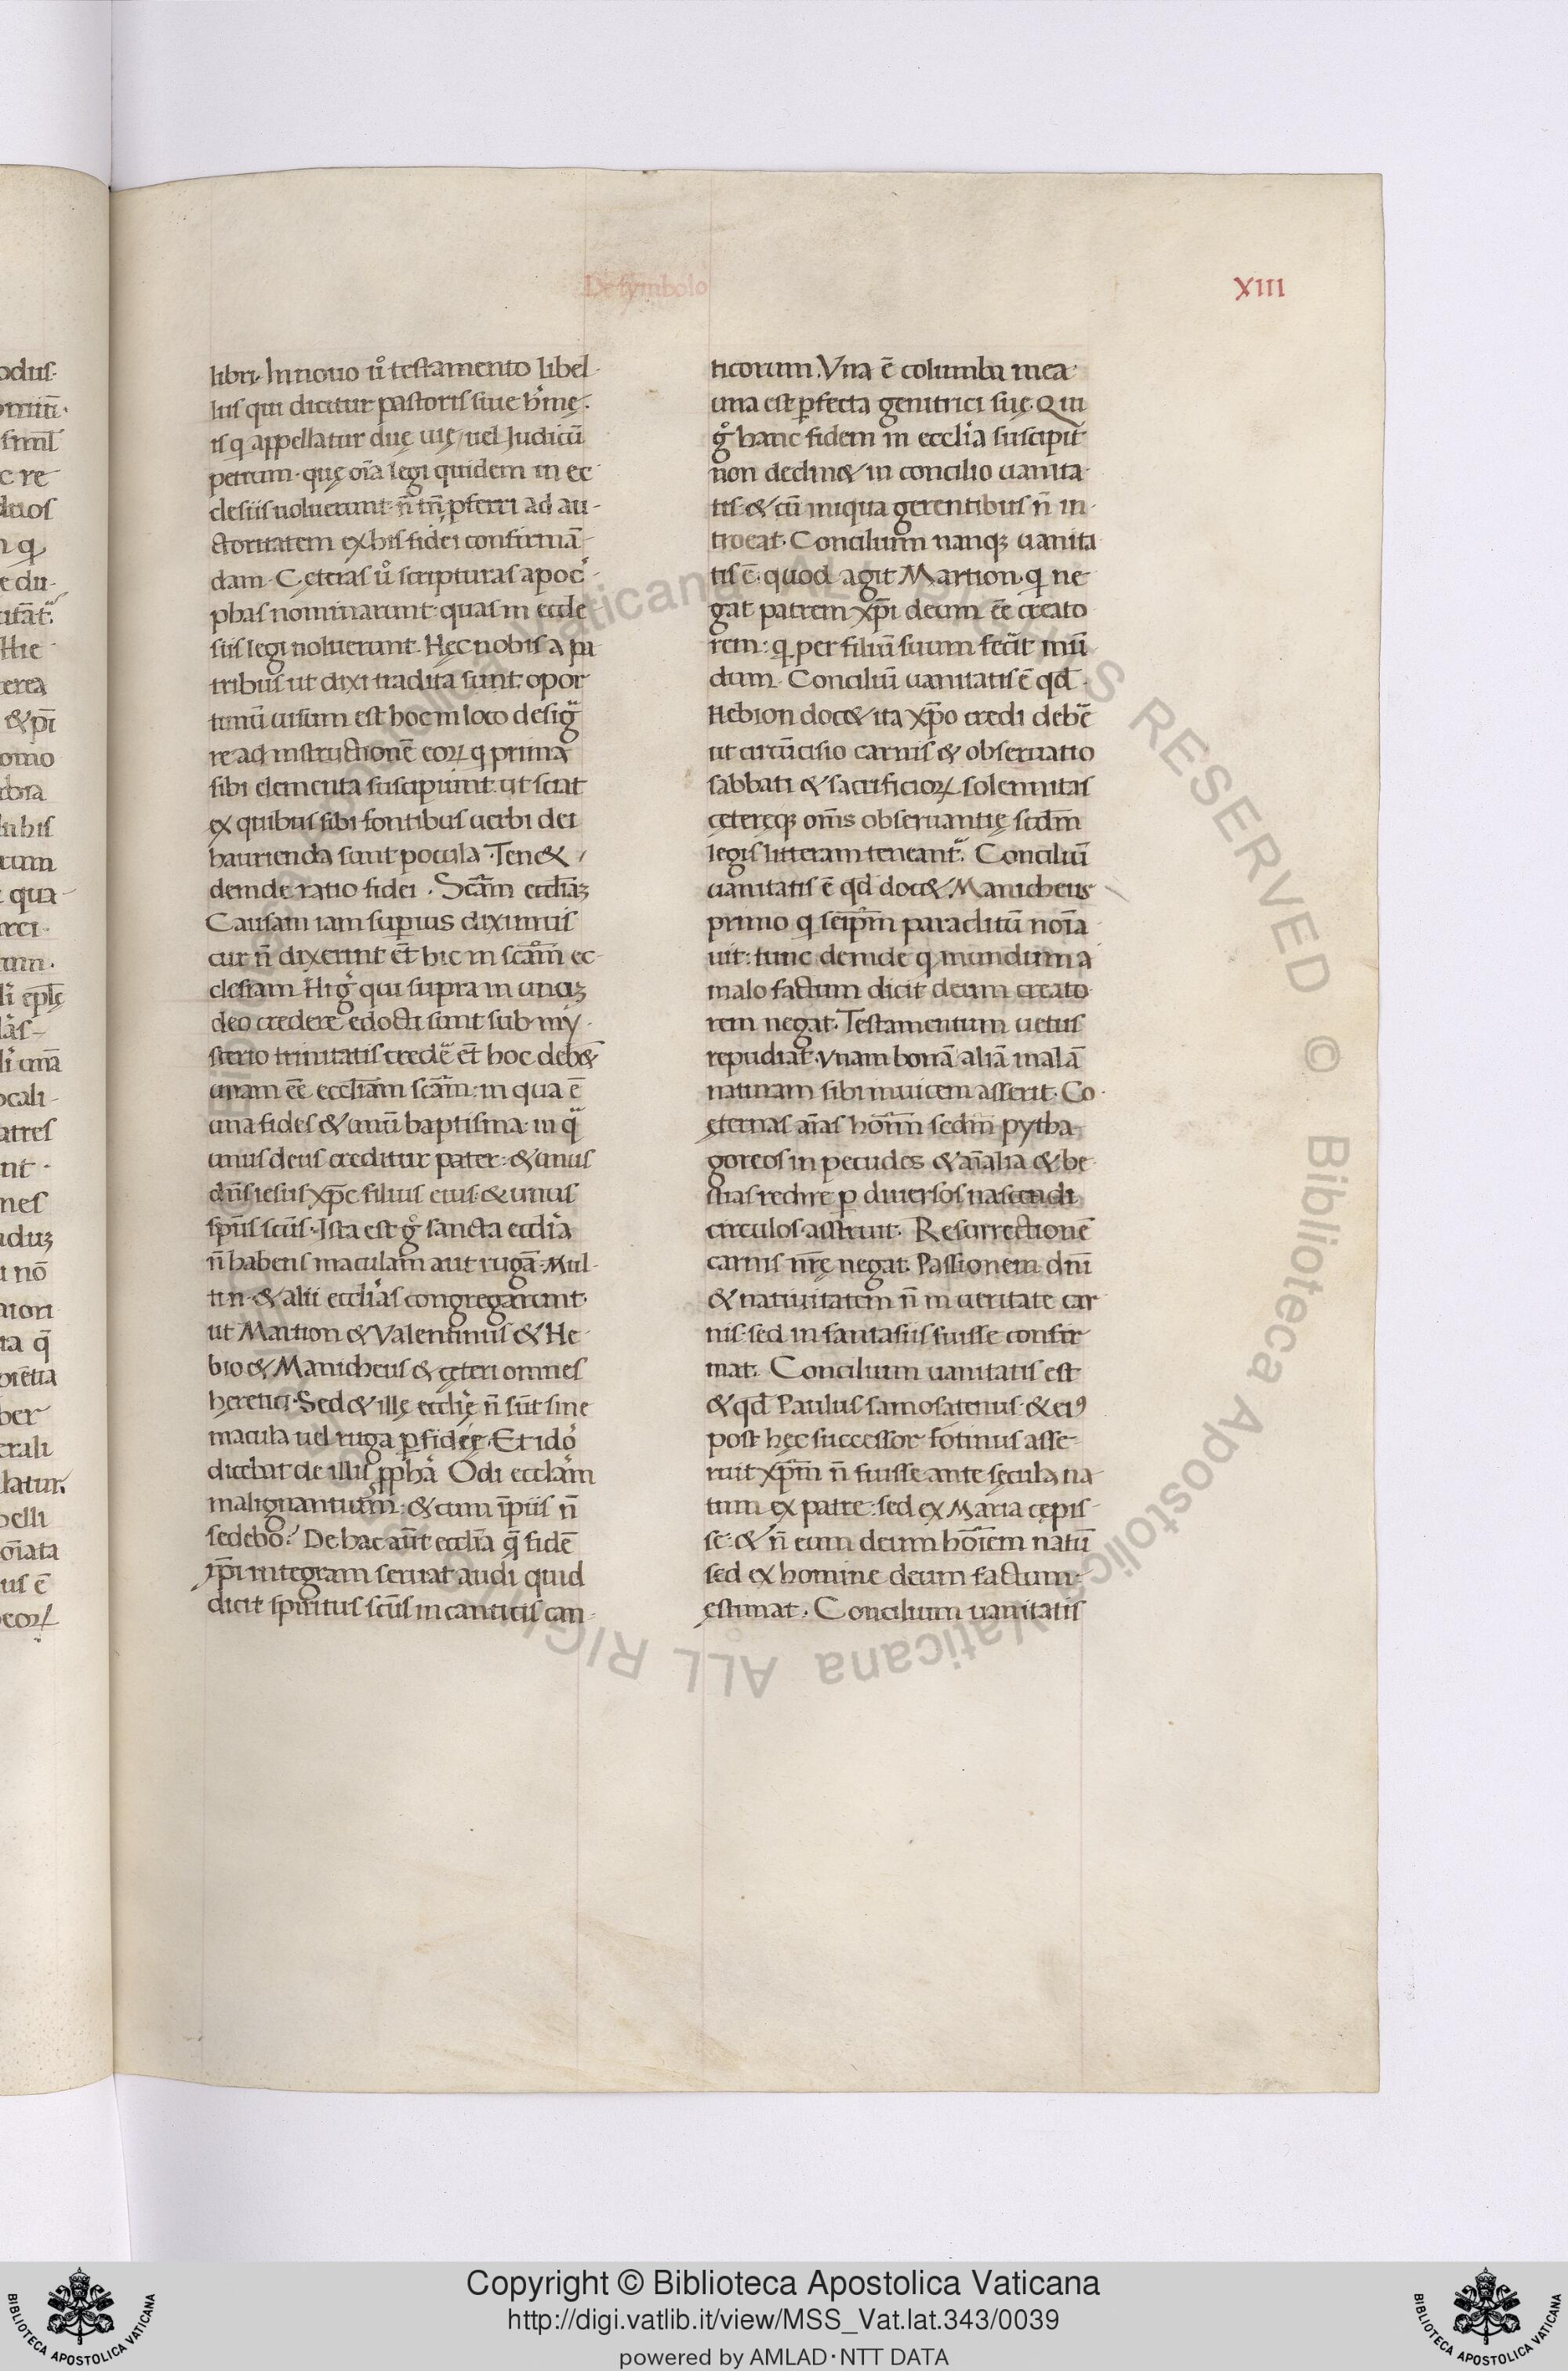 De symbolo
XIII
libri. In nouo u᷎o testamento libel-
lus qui dicitur pastoris siue h̉mę.
is q̣ appellatur duę uię, uel Iudiciū
petrum. quę oīa legi quidem in ec-
clesiis uoluerunt. n̄ tn̄ ꝓferri ad au-
ctoritatem ex his fidei confirmā-
dam. Cęteras uͦ scripturas apoc̉-
phas nominarunt: quas in eccle
siis legi noluerunt. Hęc nobis a pa
tribus ut dixi tradita sunt: opor
tunū uisum est hoc in loco desigᷓ
re ad instructionē eoꝝ q prima
sibi elementa suscipiunt. ut sciāt
ex quibus sibi fontibus uerbi dei
haurienda sunt pocula. Ten&
deinde ratio fidei. Scām eccl̄iaꝫ
Causam iam superius diximus
cur n̄ dixerint et̄ hic in scām ec-
clesiam. Hi gͦ qui supra in unūꝫ
deo credere edocti sunt sub my-
sterio trinitatis credē et̄ hoc deb&̄
unam eē eccl̄iam scām: in qua ē
una fides & unū baptisma: in qᷓ
unus deus creditur pater: & unus
dn̄s iesus xp̄c filius eius: & unus
sp̄us scūs. Ista est gͦ sancta eccl̄ia
n̄ habens maculam aut rugā. Mul-
ti n̄. & alii eccl̄ias congregarunt.
ut Martion & Valentinus & He-
bio & Manicheus & cęteri omnes
hęretici. Sed & illę eccl̄ię n̄ sūt sine
macula uel ruga ꝑfidię. Et idͦo
dicebat de illis ꝓph̄a. Odi eccl̄am
malignantium: & cum īpiis n̄
sedebo. De hac aūt eccl̄ia q̄ fidē
xp̄i integram seruat audi quid
dicit spiritus scūs in canticis can-
ticorum. Vna ē columba mea:
una est ꝑfecta genitrici suę. Qui
gͦ hanc fidem in eccl̄ia suscipit
non declin& in concilio uanita-
tis: & cū iniqua gerentibus n̄ in-
troeat. Concilium nanqꝫ uanita
tis ē. quod agit Martion. q̣ ne-
gat patrem xp̄i deum eē creato
rem: q̣ per filiū suum fecit mū
dum. Conciliū uanitatis ē qd̄
Hebion doc& ita xp̄o credi debē
ut circūcisio carnis & obseruatio
sabbati & sacrificioꝝ solennitas
cęteręqꝫ om̄s obseruantię scdm̄
legis litteram teneantᷣ. Conciliū
uanitatis ē qd̄ doc& Manicheus
primo q̣ seip̄m paraclitū noīa
uit: tunc deinde q̣ mundum a
malo factum dicit deum creato
rem negat. Testamentum uetus
repudiat. unam bonā aliā malā
naturam sibi inuicem asserit. Co-
ęternas aīas hoīm scdm̄ pytha
goreos in pecudes & aīalia & be
stias redire ꝑ diuersos nascendi
circulos. astruit. Resurrectionē
carnis nr̄ę negat. Passionem dn̄i
& natiuitatem n̄ in ueritate car
nis: sed in fantasiis fuisse confir
mat. Concilium uanitatis est
& qd̄ Paulus samosatenus: & eiꝰ
post hęc successor fotinus asse-
ruit xp̄m n̄ fuisse ante sęcula na
tum ex patre: sed ex Maria cępis-
se: & n̄ eum deum hoīem natū
sed ex homine deum factum
ęstimat. Concilium uanitatis
Copyright © Biblioteca Apostolica Vaticana
http://digi.vatlib.it/view/MSS_Vat.lat.343/0039
powered by AMLAD·NTT DATA
BIBLIOTECA APOSTOLICA VATICANA
BIBLIOTECA APOSTOLICA VATICANA